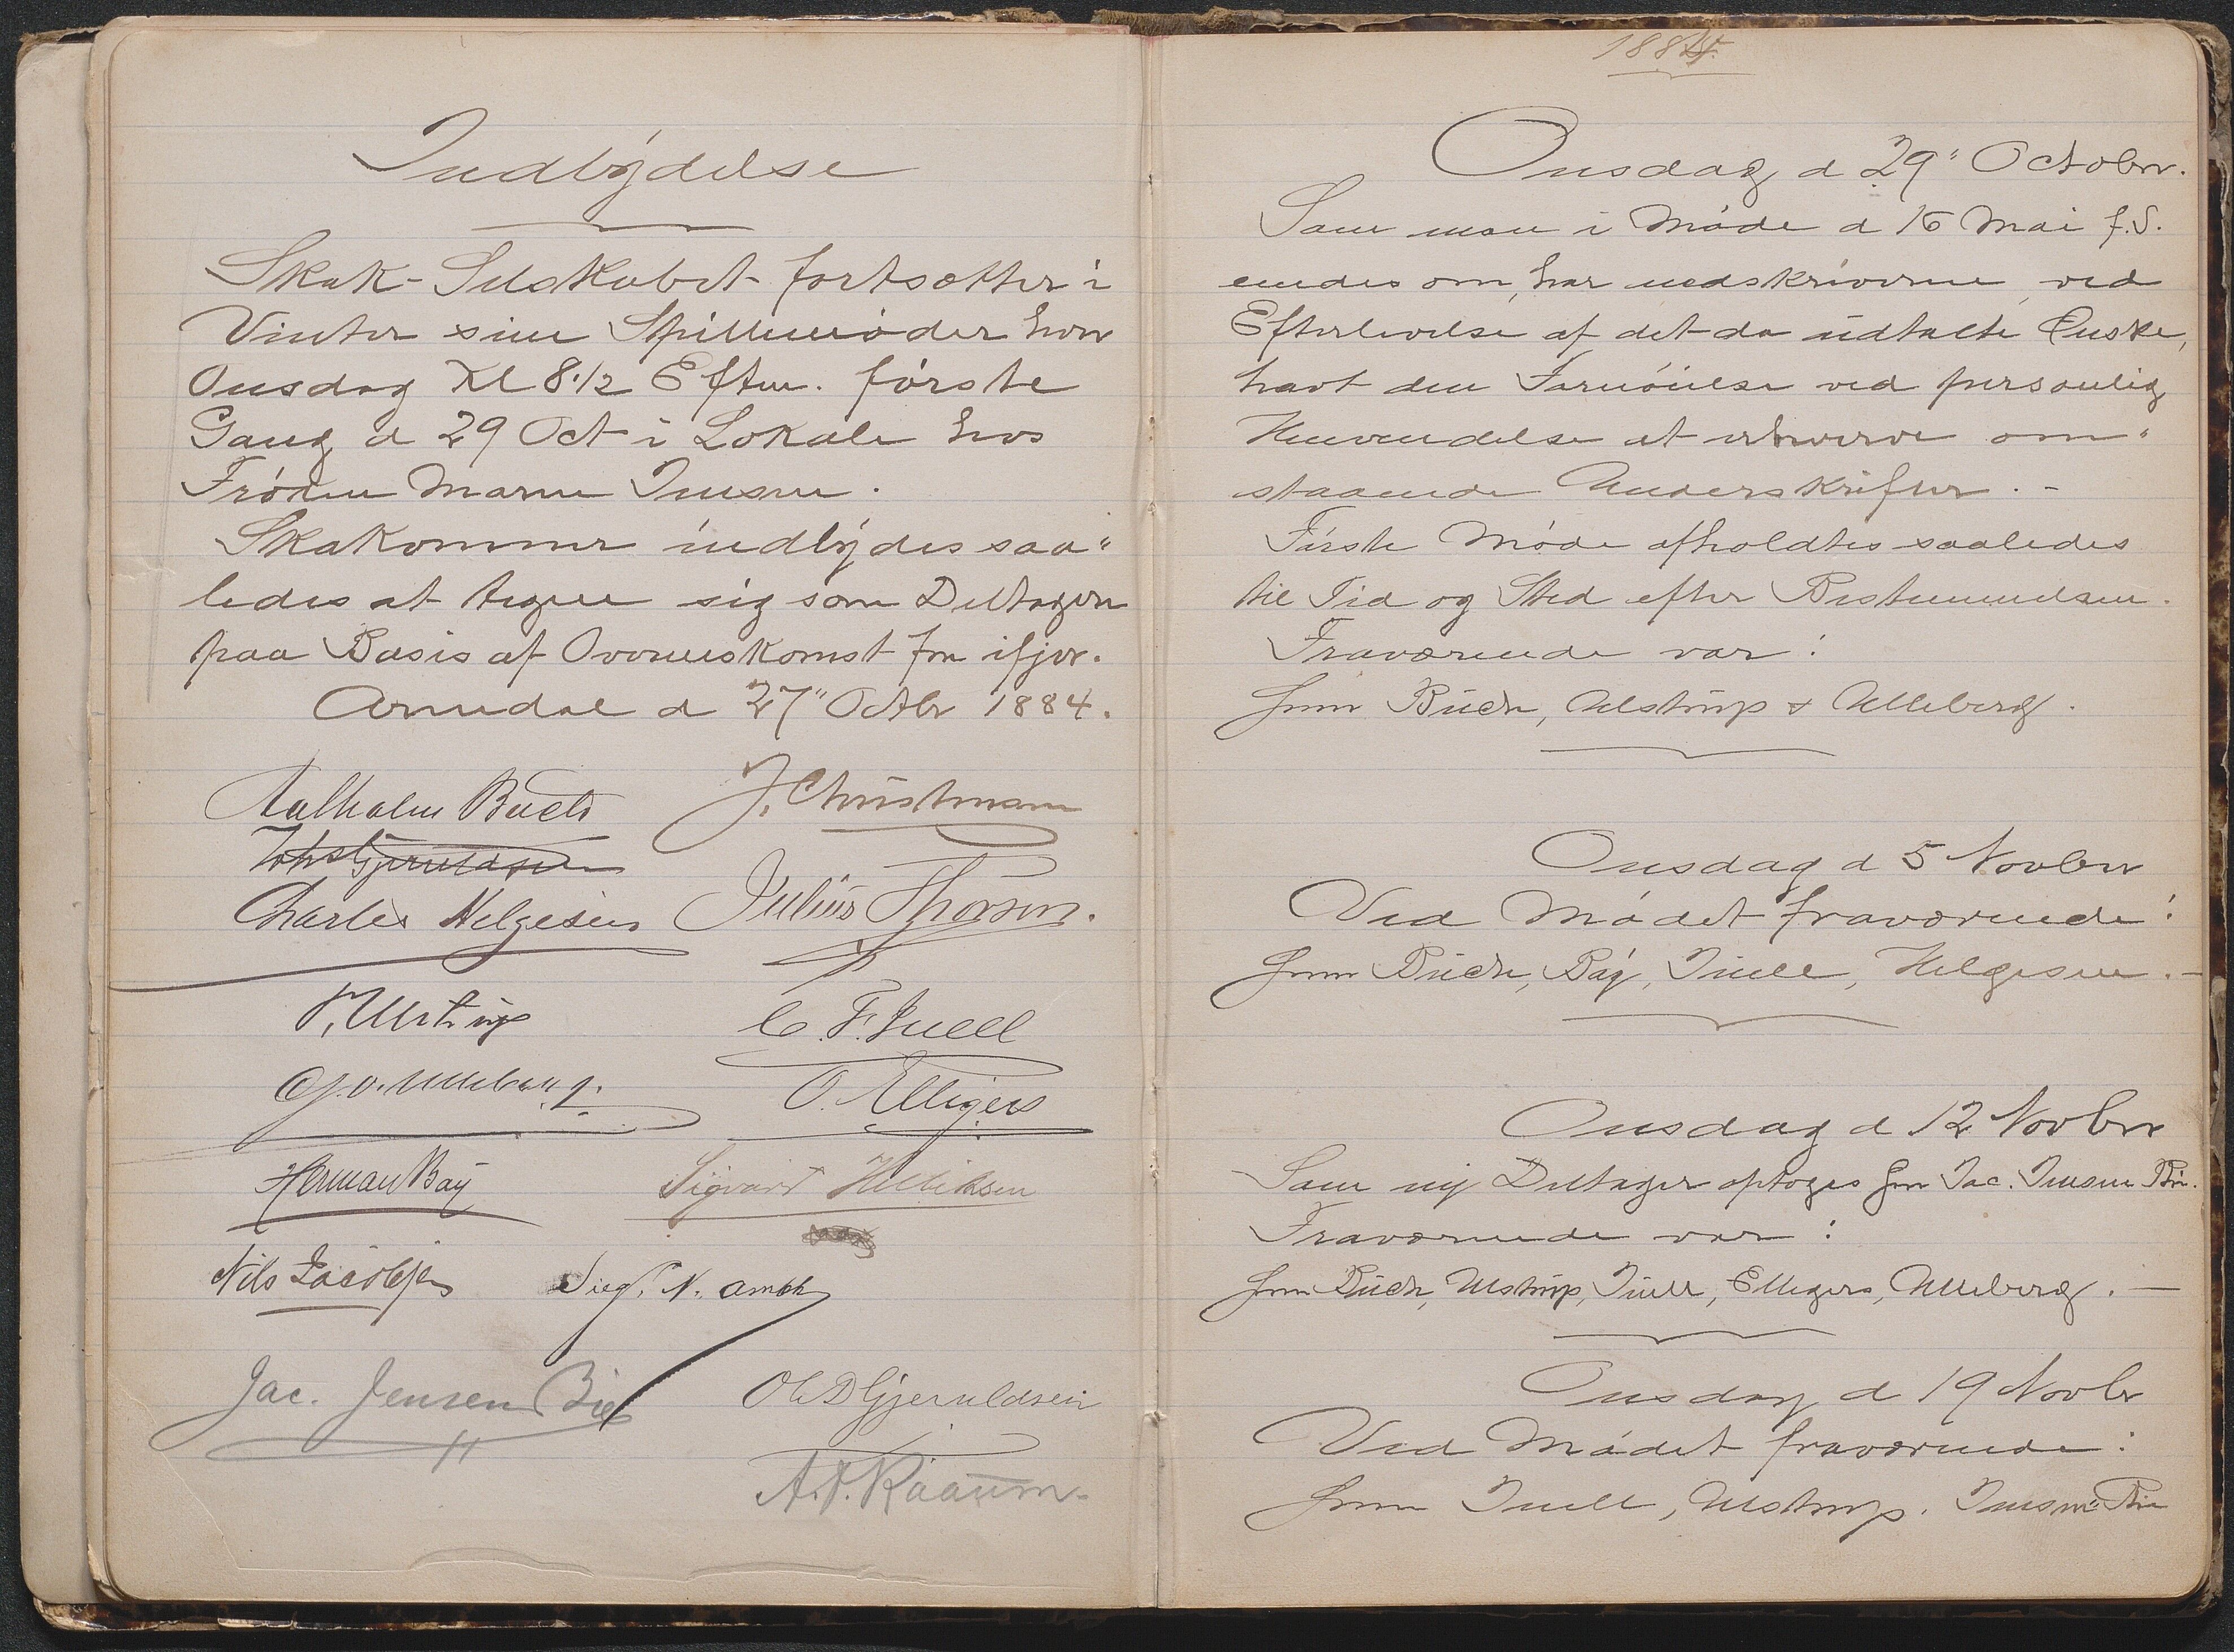 Indbýdelse
Skak-Selskabet fortsætter i
Vinter sine Spillemøder hver
Onsdag Kl 8 1/2 Efterm. første
Gang d 29 Oct i Lokale hos
Frøken Maren Jensen.
Skakvenner indbýdes saa"
ledes at tegne sig som Deltagere
paa Basis af Overenskomst fra ifjor.
Arendal d 27" Octbr 1884.
Aalholm Buch J. Christmann
Charles Helgesen Julius Thorsen.
P. Ulstrup C. F. Juell
O. Ulleberg. O. Elligers
Herman Baÿ Sigvart
Nils Jacobsen N.
Jac. Jensen Bie Ole D Gjeruldsen
A. Raaum.
1884.
Onsdag d 29" October.
Som man i Møde d 16 Mai f.S.
enedes om, har nedskriverne ved
Efterlevelse af det da udtalte Ønske,
havt den Fornøielse ved personlig
Henvendelse at erhverve om"
staaende Underskrifter. -
Første Møde afholdtes saaledes
til Tid og Sted efter Bestemmelsen.
Fraværende var:
Herrer Buch, Ulstrup & Ulleberg.
Onsdag d 5 Novbr
Ved Mødet fraværende:
Herrer Buch, Baý, Juell, Helgesen. -
Onsdag d 12 Novbr
Som ny Deltager optoges Herr Jac. Jensen Bie.
Fraværende var:
Herrer Buch, Ulstrup, Juell, Elligers, Ulleberg. -
Onsdag d 19 Novbr
Ved Mødet fraværende:
Herrer Juell, Ulstrup. Jensen Bie